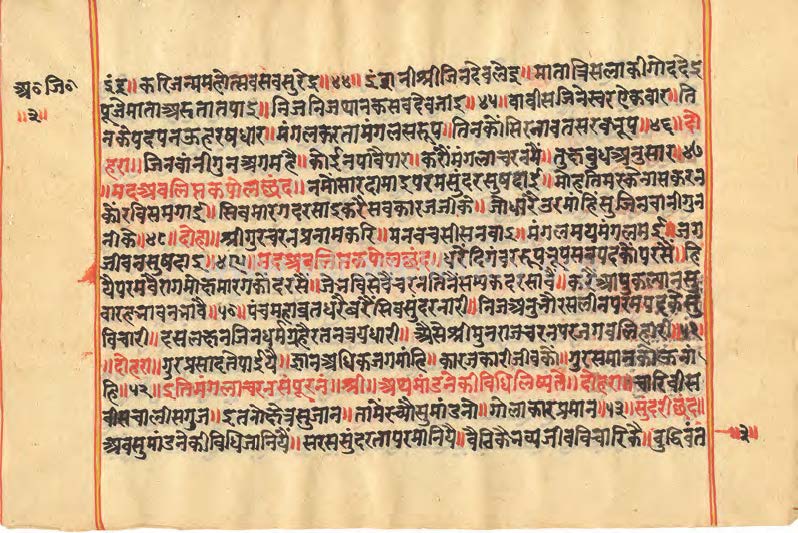 अ॰जि॰
॥२॥
इंद्र॥ करिजन्ममहोत्सवसबसुरेंद्र॥४४॥ इंद्रानीश्रीजिनदेवलेइ॥ माताविसलाकीगोददेइ
पूजेमाताअरुतातपाइ॥ निजनिजथानकसबदेवजाइ॥४५॥ बावीसजिनेस्वरऐकवार॥ ति
नकेपदपनऊहरषधार॥ मंगलकरतामंगलसरूप॥ तिनकोंसिरनावतसरवभूप॥४६॥ दो
हरा॥ जिनवांनीगुनअगमहै॥ कोईनपावैपार॥ करौंमंगलाचरनमै॥ तुछबुधअनुसार॥४७
॥मदअवलिप्तकपोलछंद॥ नमोसारदामाइपरमसुंदरसुषदाई॥ मोहतिमरकेनासकरन
कोंरविसमगाई॥ सिवमारगदरसाइकरैसबकारजनीके॥ जोधारैउरमोहिसुजिनवानीगुन
नीके॥४८॥ दोहा॥ श्रीगुरचरनप्रनामकरि॥ मनवचसीसनवाइ॥ मंगलमयमंगलमई॥ जग
जीवनसुषदाइ॥४९॥ मदअवलिप्तकपोलछंद॥ धरैदिगंवररूपभूपसबपदकोंपरसै॥ हि
यैपरमवैरागमोक्षमारगकोंदरसै॥ जेभविसेवैचरनतिनैसम्यकदरसावै॥ करैआपकल्यानसु
वारहभावनभावै॥५०॥ पंचमहाव्रतधरैबरैसिवसुंदरनारी॥ निजअनुभौरसलीनपरमपदकेसु
विचारी॥ दसलछनजिनधर्मगहैरतनत्रयधारी॥ अैसेश्रीमुनराजचरनपरजगबलिहारी॥५१
॥दोहरा॥ गुरप्रसादतेपाईयै॥ ज्ञानअधिकजगमांहि॥ कारजकारीजीवको॥ गुरसमानकोऊना
हि॥५२॥ इतिमंगलाचरनसंपूरनं॥ श्री॥ अथमांडनेकीविधिलिष्यते॥ दोहरा॥ चारिवीस
चालीसगुन॥ इतनोक्षेत्रसुजान॥ तामेरच्यौसुमांडनो॥ गोलाकारप्रमान॥५३॥ सुंदरीछंद॥
अवसुमांडनेकीविधिजानियै॥ सरससुंदरतापरमांनियै॥ वैठिकैभव्यजीवविचारिकै॥ बुद्धिवंत
॥२॥